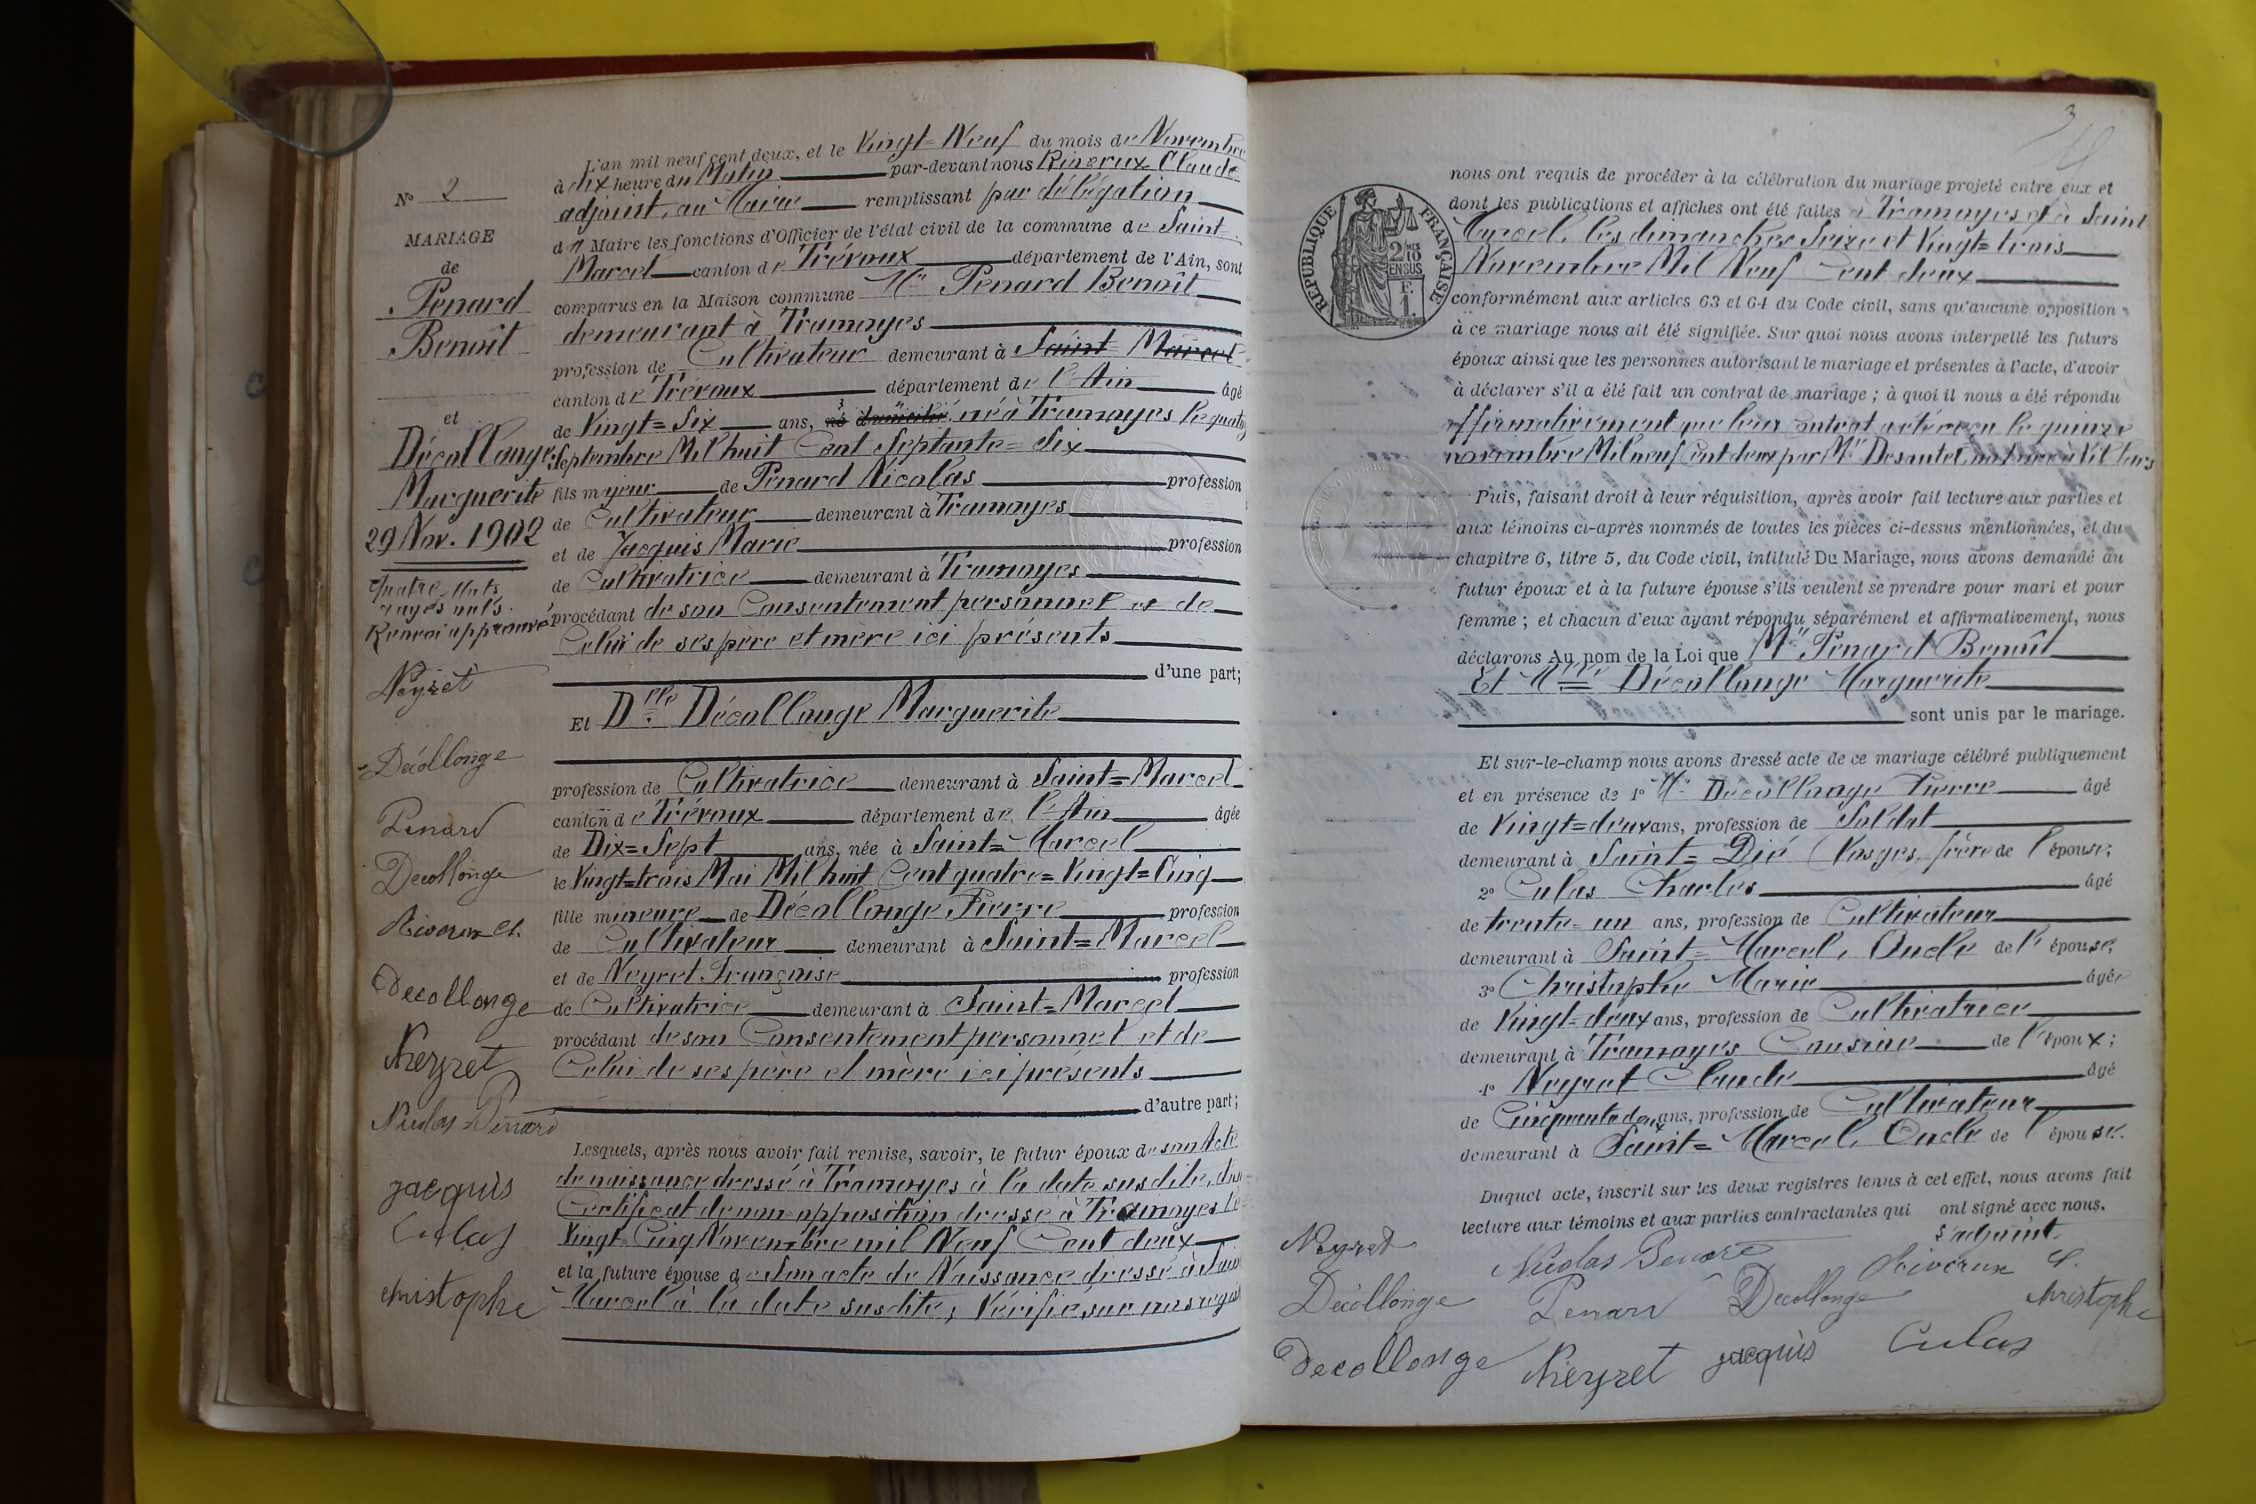 L'an mil neuf cent deux, et le Vingt=Neuf du mois de Novembre
à dix heure du Matin par-devant nous Riverux Claude
adjoint, au Maire remplissant par délégation
du Maire les fonctions d'Officier de l'état civil de la commune de Saint
Marcel canton de Trévoux département de l'Ain, sont
comparus en la Maison commune Mr Penard Benoît
demeurant à Tramoyes
profession de Cultivateur demeurant à Saint=Marcel
canton de Trévoux département de l'Ain âgé
de Vingt=Six ans, né à Tramoyes le quatre
Septembre Mil huit Cent Septante=Six
fils majeur de Penard Nicolas profession
de Cultivateur demeurant à Tramoyes
et de Jacquis Marie profession
de Cultivatrice demeurant à Tramoyes
procédant de son Consentement personnel et de
Celui de ses père et mère ici présents
d'une part;
Et Dlle Décollonge Marguerite
profession de Cultivatrice demeurant à Saint=Marcel
canton de Trévoux département de l'Ain âgée
de Dix=Sept ans, née à Saint=Marcel
le Vingt=trois Mai Mil huit Cent quatre=Vingt=Cinq
fille mineure de Décollonge Pierre profession
de Cultivateur demeurant à Saint=Marcel
et de Neyret Françoise profession
de Cultivatrice demeurant à Saint=Marcel
procédant de son Consentement personnel et de
Celui de ses père et mère ici présents
d'autre part;
Lesquels, après nous avoir fait remise, savoir, le futur époux de son Acte
de naissance dressé à Tramoyes à la date susdite, du
Certificat de non=opposition dressé à Tramoyes le
Vingt=Cinq Novembre mil Neuf Cent deux
et la future épouse de Son acte de Naissance dressé à Saint
Marcel à la date susdite, Vérifié sur nos regist
N° 2
MARIAGE
de
Penard
Benoît
et
Décollonge
Marguerite
29 Nov. 1902
Quatre Mots
rayés nuls.
Renvoi approuvé
Neyret
Décollonge
Penard
Decollonge
Riverux Cl.
Decollonge
Neyret
Nicolas Penard
jacquis
Culas
christophe
3
nous ont requis de procéder à la célébration du mariage projeté entre eux et
dont les publications et affiches ont été faites à Tramoyes et à Saint
Marcel, les dimanches Seize et Vingt=trois
Novembre Mil Neuf Cent deux
conformément aux articles 63 et 64 du Code civil, sans qu'aucune opposition
à ce mariage nous ait été signifiée. Sur quoi nous avons interpellé les futurs
époux ainsi que les personnes autorisant le mariage et présentes à l'acte, d'avoir
à déclarer s'il a été fait un contrat de mariage; à quoi il nous a été répondu
affirmativement que leur Contrat a été reçu le quinze
novembre Mil neuf Cent deux par Me Desautel, notaire à Villars
Puis, faisant droit à leur réquisition, après avoir fait lecture aux parties et
aux témoins ci-après nommés de toutes les pièces ci-dessus mentionnées, et du
chapitre 6, titre 5, du Code civil, intitulé Du Mariage, nous avons demandé au
futur époux et à la future épouse s'ils veulent se prendre pour mari et pour
femme; et chacun d'eux ayant répondu séparément et affirmativement, nous
déclarons Au nom de la Loi que Mr Penard Benoît
Et Melle Décollonge Marguerite
sont unis par le mariage.
Et sur-le-champ nous avons dressé acte de ce mariage célébré publiquement
et en présence de 1° Mr Décollonge Pierre âgé
de Vingt=deux ans, profession de Soldat
demeurant à Saint=Dié Vosges, frère de l'épouse;
2° Culas Charles âgé
de trente=un ans, profession de Cultivateur
demeurant à Saint=Marcel, Oncle de l'épouse;
3° Christophe Marie âgée
de Vingt=deux ans, profession de Cultivatrice
demeurant à Tramoyes Cousine de l'époux;
4° Neyret Claude âgé
de Cinquante deux ans, profession de Cultivateur
demeurant à Saint=Marcel, Oncle de l'épouse.
Duquel acte, inscrit sur les deux registres tenus à cet effet, nous avons fait
lecture aux témoins et aux parties contractantes qui ont signé avec nous.
l'adjoint
Neyret Nicolas Penard Riverux Cl.
Décollonge Penard Decollonge christophe
Decollonge Neyret jacquis Culas
RÉPUBLIQUE FRANÇAISE
2/10
EN SUS
F.
1.